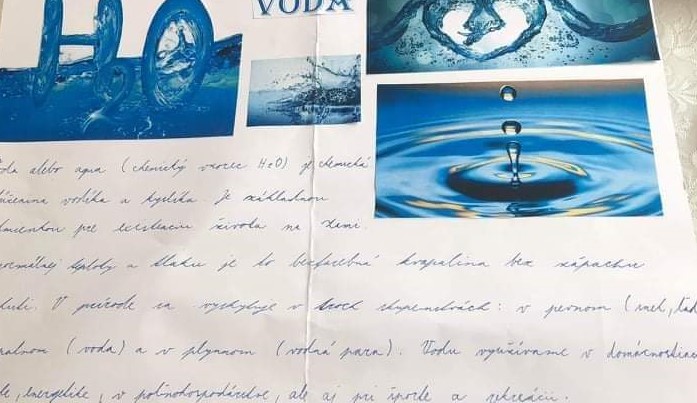 H2O
VODA
alebo aqua (chemický vzorec H2O) je chemická
vodíka a kyslíka. Je základnou
pre existenciu života na Zemi.
teploty a tlaku je to bezfarebná kvapalina bez zápachu
chuti. V prírode sa vyskytuje v troch skupenstvách: v pevnom (sneh, ľad
(voda) a v plynnom (vodná para). Vodu využívame v
energetike, v poľnohospodárstve, ale aj pri športe a rekreácii.